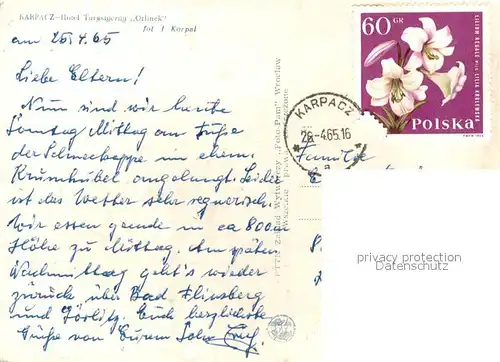 KARPACZ—Hotel Turystyczny „Orlinek"
fot. J. Korpal
am 25.4.65
Liebe Eltern!
Nun sind wir heute
Sonntag Mittag am Fuße
der Schneekoppe im ehem.
Krumhübel angelangt. Leider
ist das Wetter sehr regnerisch.
Wir essen gerade in ca 800m
Höhe zu Mittag. Am späten
Nachmittag geht's wieder
zurück über Bad Flinsberg
und Görlitz. Euch herzlichste
Grüße von Eurem Sohn
PTTK Zakład Wytwórczy „Foto-Pam" Wrocław
Wszelkie prawa zastrzeżone
60 GR
LILIUM REGALE
LILIA KRÓLEWSKA
Polska
KARPACZ
26.-4.65.16
a
Familie
privacy protection
Datenschutz